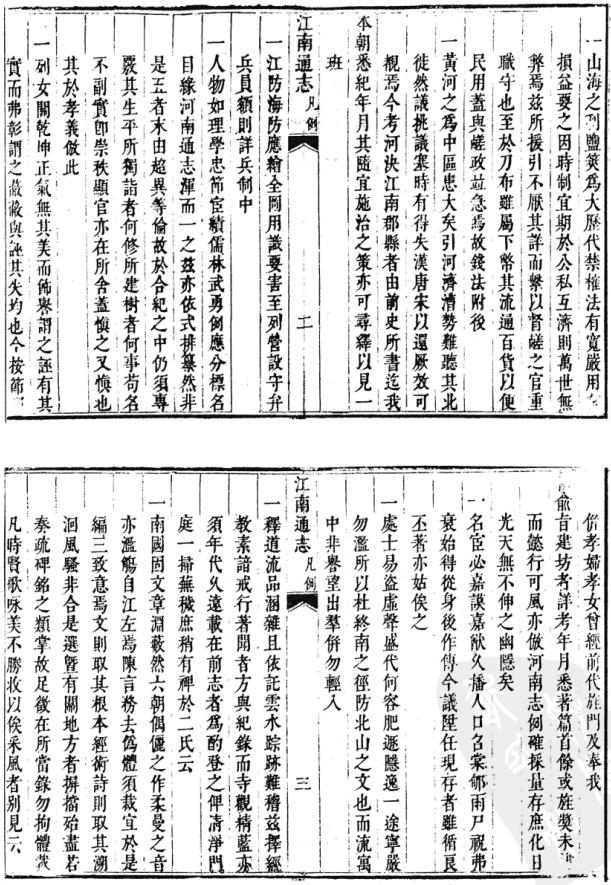 一山海之利鹽筴爲大歷代禁榷法有寬嚴用有
損益要之因時制宜期於公私互濟則萬世無
弊焉兹所援引不厭其詳而繫以督鹺之官重
職守也至於刀布雖屬下幣其流通百貨以便
民用葢與鹺政竝急焉故錢法附後
一黃河之爲中區患大矣引河濟漕勢難聽其北
徙然議挑議塞時有得失漢唐宋以還厥效可
覩焉今考河決江南郡縣者由前史所書迄我
本朝悉紀年月其隨宜施治之策亦可尋繹以見一
班
江南通志
凡例
二
一江防海防應繪全圖用識要害至列營設守弁
兵員額則詳兵制中
一人物如理學忠節宦績儒林武勇例應分標名
目緣河南通志渾而一之兹亦依式排纂然非
是五者末由超異等倫故於合紀之中仍須專
覈其生平所獨詣者何修所建樹者何事苟名
不副實卽崇秩顯官亦在所舍葢愼之又愼也
其於孝義倣此
一列女關乾坤正氣無其美而飾譽謂之誣有其
實而弗彰謂之蔽蔽與誣其失均也今按節
倫孝婦孝女曾經前代旌門及奉我
俞旨建坊者詳考年月悉著篇首餘或旌奬未
而懿行可風亦倣河南志例確採量存庶化日
光天無不伸之幽隱矣
一名臣必嘉謨嘉猷久播人口名宦郇雨尸祝弗
衰始得從身後作傳今議陞任現存者雖循良
丕著亦姑俟之
一處士易盜虛聲盛代何容肥遯隱逸一途寧嚴
勿濫所以杜終南之徑防北山之文也而流寓
中非譽望出羣倂勿輕入
江南通志
凡例
三
一釋道流品溷雜且依託雲水踪跡難稽兹擇經
教素諳戒行著聞者方與紀錄而寺觀精藍亦
須年代久遠載在前志者爲酌登之俾清淨門
庭一掃蕪穢庶稍有禆於二氏云
一南國固文章淵藪然六朝偶儷之作柔曼之音
亦濫觴自江左焉陳言務去僞體須裁宜於是
編三致意焉文則取其根本經術詩則取其溯
洄風騷非合是選曁有關地方者摒擋殆盡若
奏疏碑銘之類掌故足徵在所當錄勿拘體裁
凡時賢歌咏美不勝收以俟采風者别見云